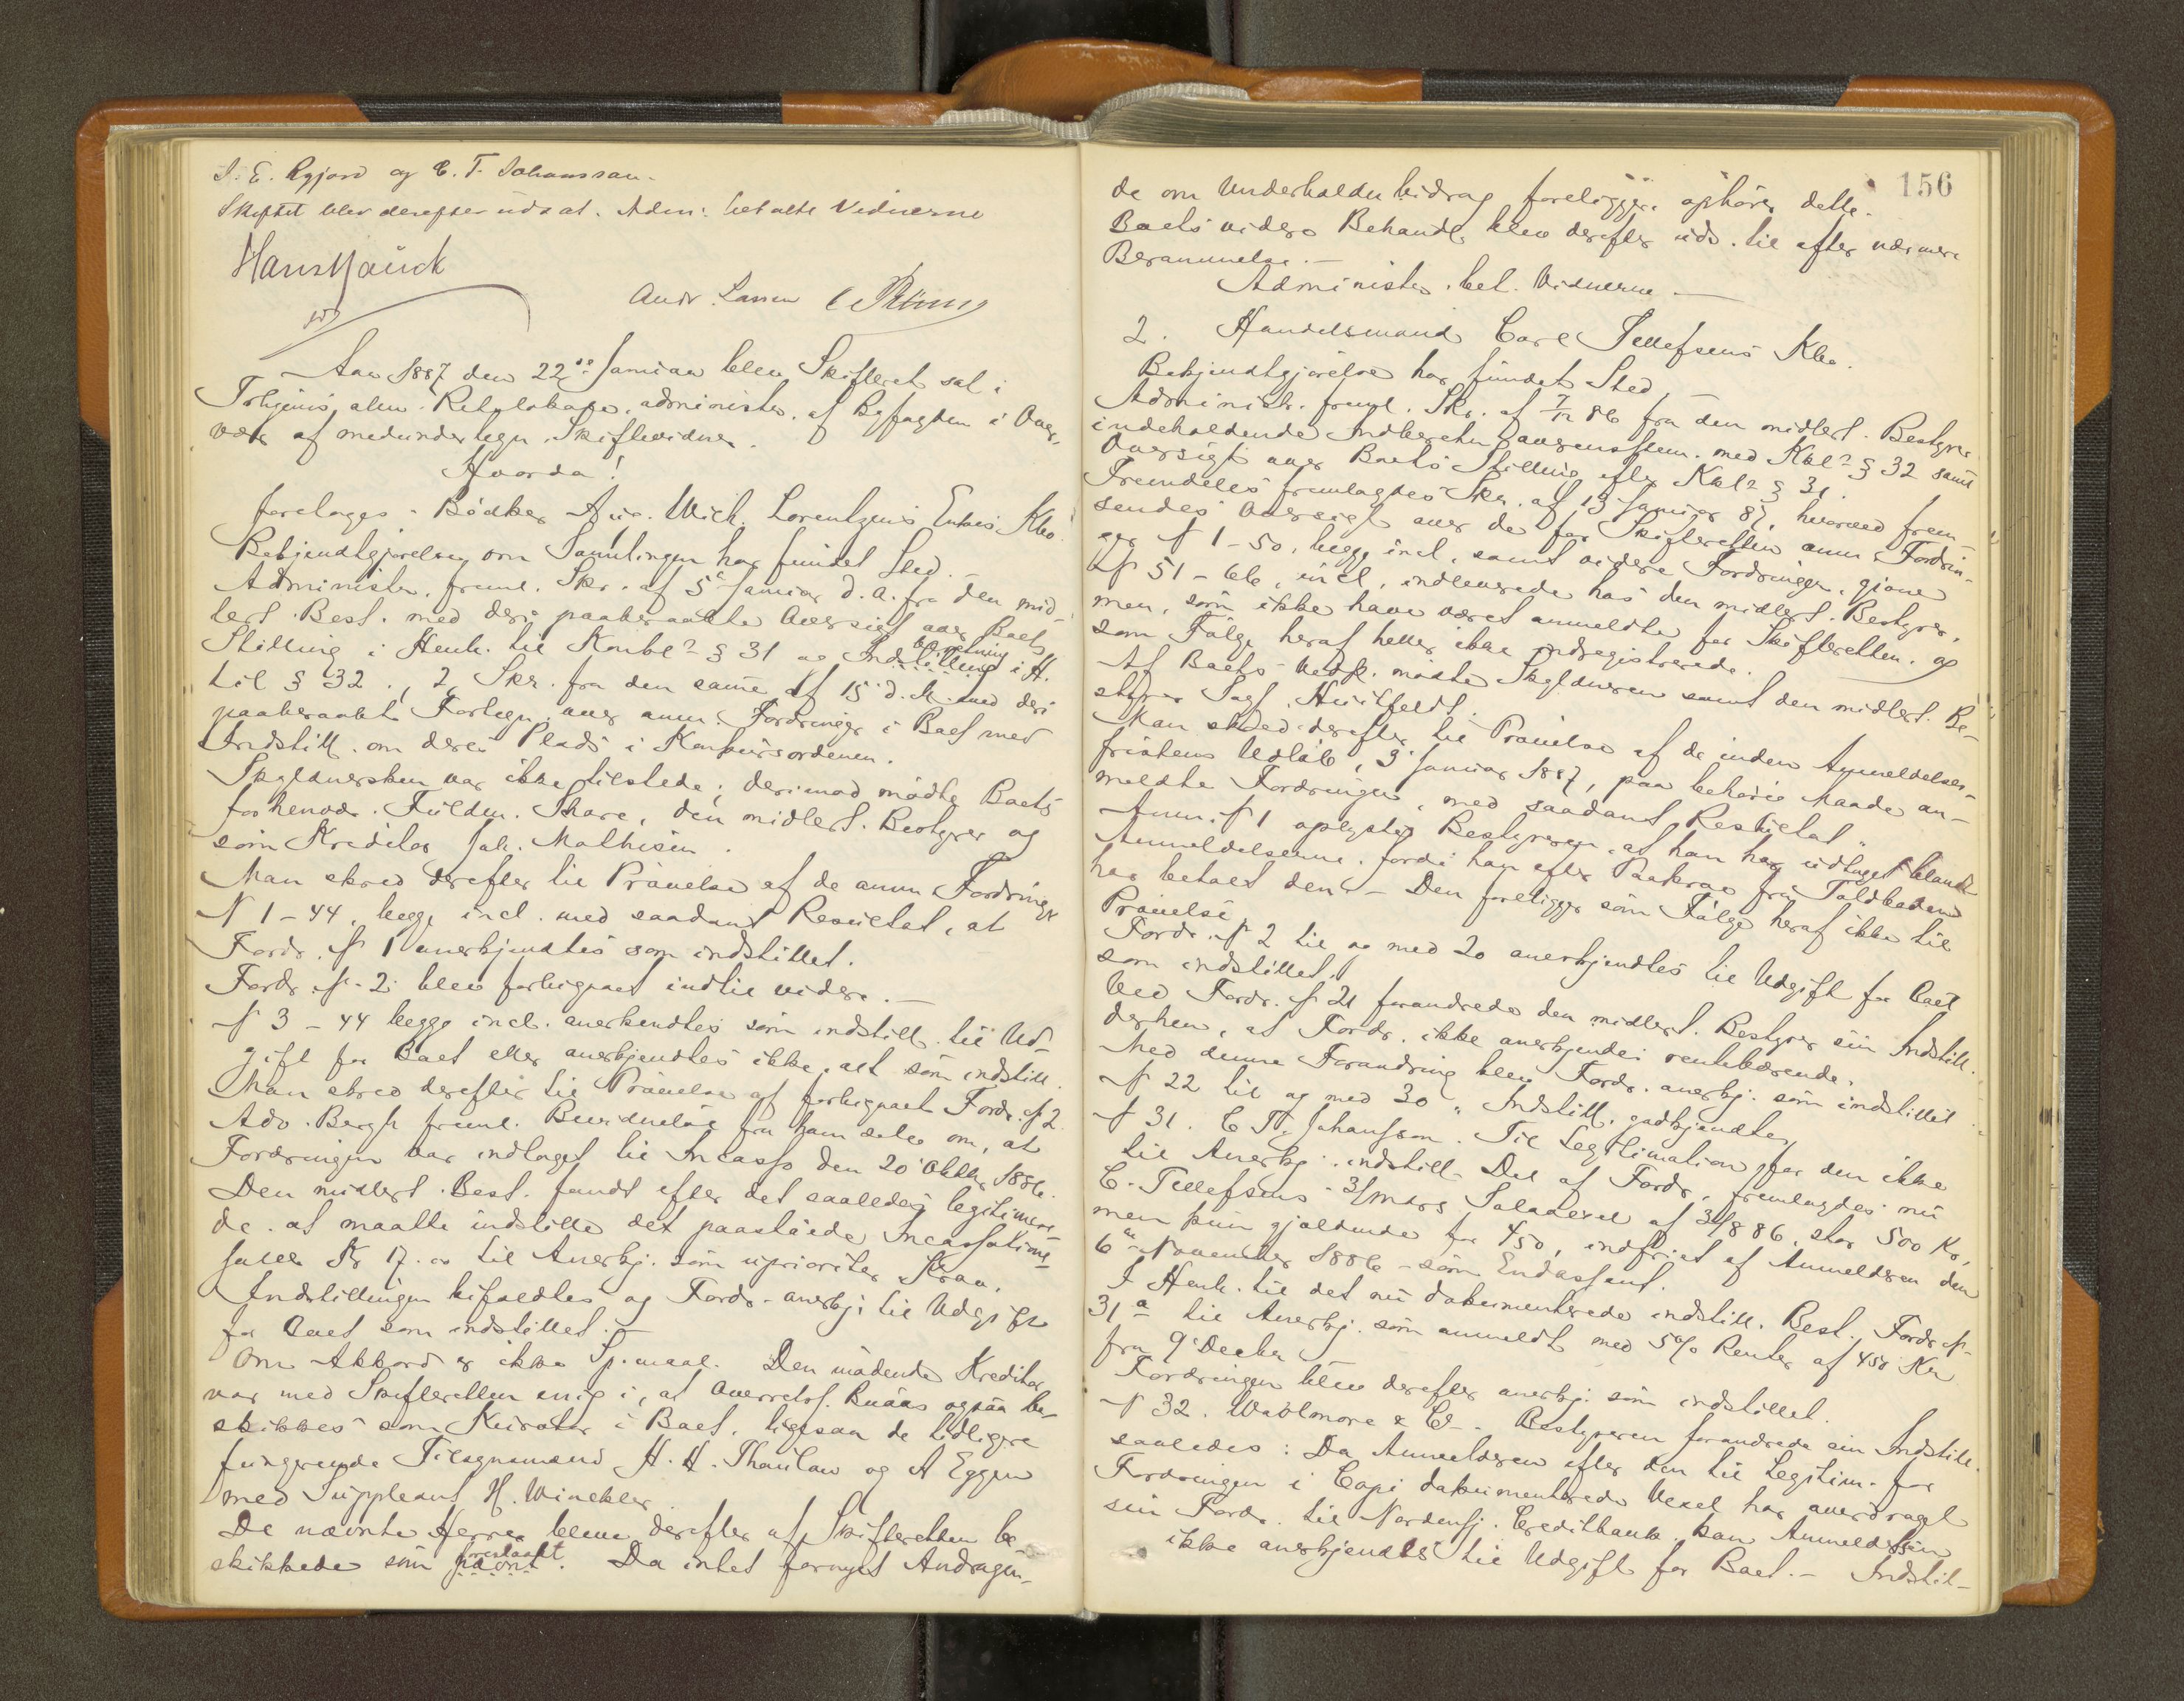 I. E. Rygjord og C. T. Johanssan.
Skiftet blev derefter udsat. Adm: betalte Vidnerne
Hans Mauck
Andr. Larsen
Aar 1887 den 22de Januar blev Skifteret sat i
Trhjems alm. Retslokale, administr. af Byfogden i Over-
vær af medundertegn. Skiftevidner.
Hvorda!
foretoges - Bødker Mich. Lorentzens Enkes Kbo.
Bekjendtgjørelse om Samlingen har fundet Sted.
Administr. freml. Skr. af 5te Januar d. A. fra den mid-
lert. Best. med deri paaberaabte Oversigt over Boets
Stilling i Henh. til Konkl? § 31 og Indberetning i H.
til § 32., 2, Skr. fra den samme af 15 d. M. med deri
paaberaabt Fortegn. over anm. Fordringer i Boet med
Indstill. om deres Plads i Konkursordenen.
Skyldnersken var ikke tilstede; derimod mødte Boets
forhenvær. Fuldm. Thore, den midlert. Bestyrer og
som Kreditor Joh. Mathisen.
Man skred derefter til Prøvelse af de anm. Fordringer
N 1-44, begge incl. med saadant Resultat, at
Fordr. N 1 anerkjendtes som indstillet.
Fordr. N. 2 blev forbigaaet indtil videre.-
N 3-44 begge incl. anerkendtes som indstill. til Ud-
gift for Boet eller anerkjendtes ikke, alt som indstill.
Man skred derefter til Prøvelse af forbigaaet Fordr. N 2.
Adv. Bergh freml. Bevidnelse fra ham selv om, at
Fordringen var indtaget til Incasso den 20 Oktbr 1886.
Den midlert. Best. fandt efter det saaledes legitimere-
de at maatte indstille det paastaaede Incassations-
salær Kr 17.00 til Anerkj. som uprioriter. Krav.
Indstillingen bifaldtes og Fordr. anerkj. til Udgift
for Boet som indstillet.-
Om Akkord er ikke Sp.maal. Den mødende Kreditor
var med Skifteretten enig i, at Overretss. Buaas ogsaa be-
skikkes som Kurator i Boet, ligesaa de tidligere
fungerende Tilsynsmænd H. H. Thaulow og A Eggen
med Suppleant H. Winckler.
De nævnte Herrer bleve derefter af Skifteretten be-
skikkede som foreslaaet. Da intet fornyet Andragen-
156
de om Underholdnbidrag foreligger, ophører dette.
Boets videre Behandl. blev derefter uds. til efter nærmere
Berammelse.-
Administr. bet. Vidnerne -
2. Handelsmand Carl Tellefsens Kbo.
Bekjendtgjørelse har fundet Sted.
Administr. freml. Skr. af 7/12 86 fra den midlert. Bestyrer
indeholdende Indberetn. overensstem. med Kbl? § 32 samt
Oversigt over Boets Stilling efter Kbl? § 31.
Fremdeles fremlagdes Skr. af 13 Januar 87, hvorved frem-
sendes Oversigt over de for Skifteretten anm. Fordrin-
ger N 1-50, begge incl. samt videre Fordringer, gjøne
N 51-66, incl. indleverede hos den midlert. Bestyrer,
men, som ikke have været anmeldte for Skifteretten. og
som Følge heraf heller ikke indregistrerede.
Af Boets Vedk. mødte Skyldneren samt den midlert. Be-
styrer Sagf. Huitfeldt.
Man skred derefter til Prøvelse af de inden Anmeldelses-
fristens Udløb, 9 Januar 1887, paa behørig Maade an-
meldte Fordringer, med saadant Resultat"
Anm. N 1 oplyste Bestyreren, at han har udtaget blandt
Anmeldelserne, fordi han efter Paakrav fra Toldboden
har betalt den.- Den foreligger som Følge heraf ikke til
Prøvelse.
Fordr. N 2 til og med 20 anerkjendtes til Udgift for Boet
som indstillet.
Ved Fordr. N 21 forandrede den midlert. Bestyrer sin Indstill.
derhen, at Fordr. ikke anerkjendes rentebærende.
Med denne Forandring blev Fordr. anerkj. som indstillet
N 22 til og med 30 " Indstill. godkjendtes
N 31. C. T. Johansson. Til Legitimation for den ikke
til Anerkj. indstill. Del af Fordr. fremlagdes nu
C. Tellefsens 3/Mdrs Solavexel af 31/8 86, stor 500 Kr,
men kun gjældende for 450, indfriet af Anmelderen den
6te November 1886 - som Endossent.
I Henh. til det nu dokumenterede indstill. Best. Fordr N
31 a til Anerkj. som anmeldt med 5% Renter af 450 Kr
fra 9 Decbr
Fordringen blev derefter anerkj. som indstillet.
N 32. Wablmore & Co. Bestyreren forandrede sin Indstill.
saaledes: Da Anmelderen efter den til Legitim. for
Fordringen i Copi dokumenterede Vexel har overdraget
sin Fordr. til Nordenfj. Creditbank, kan Anmeldelsen
ikke anerkjendes til Udgift for Boet.- Indstil-